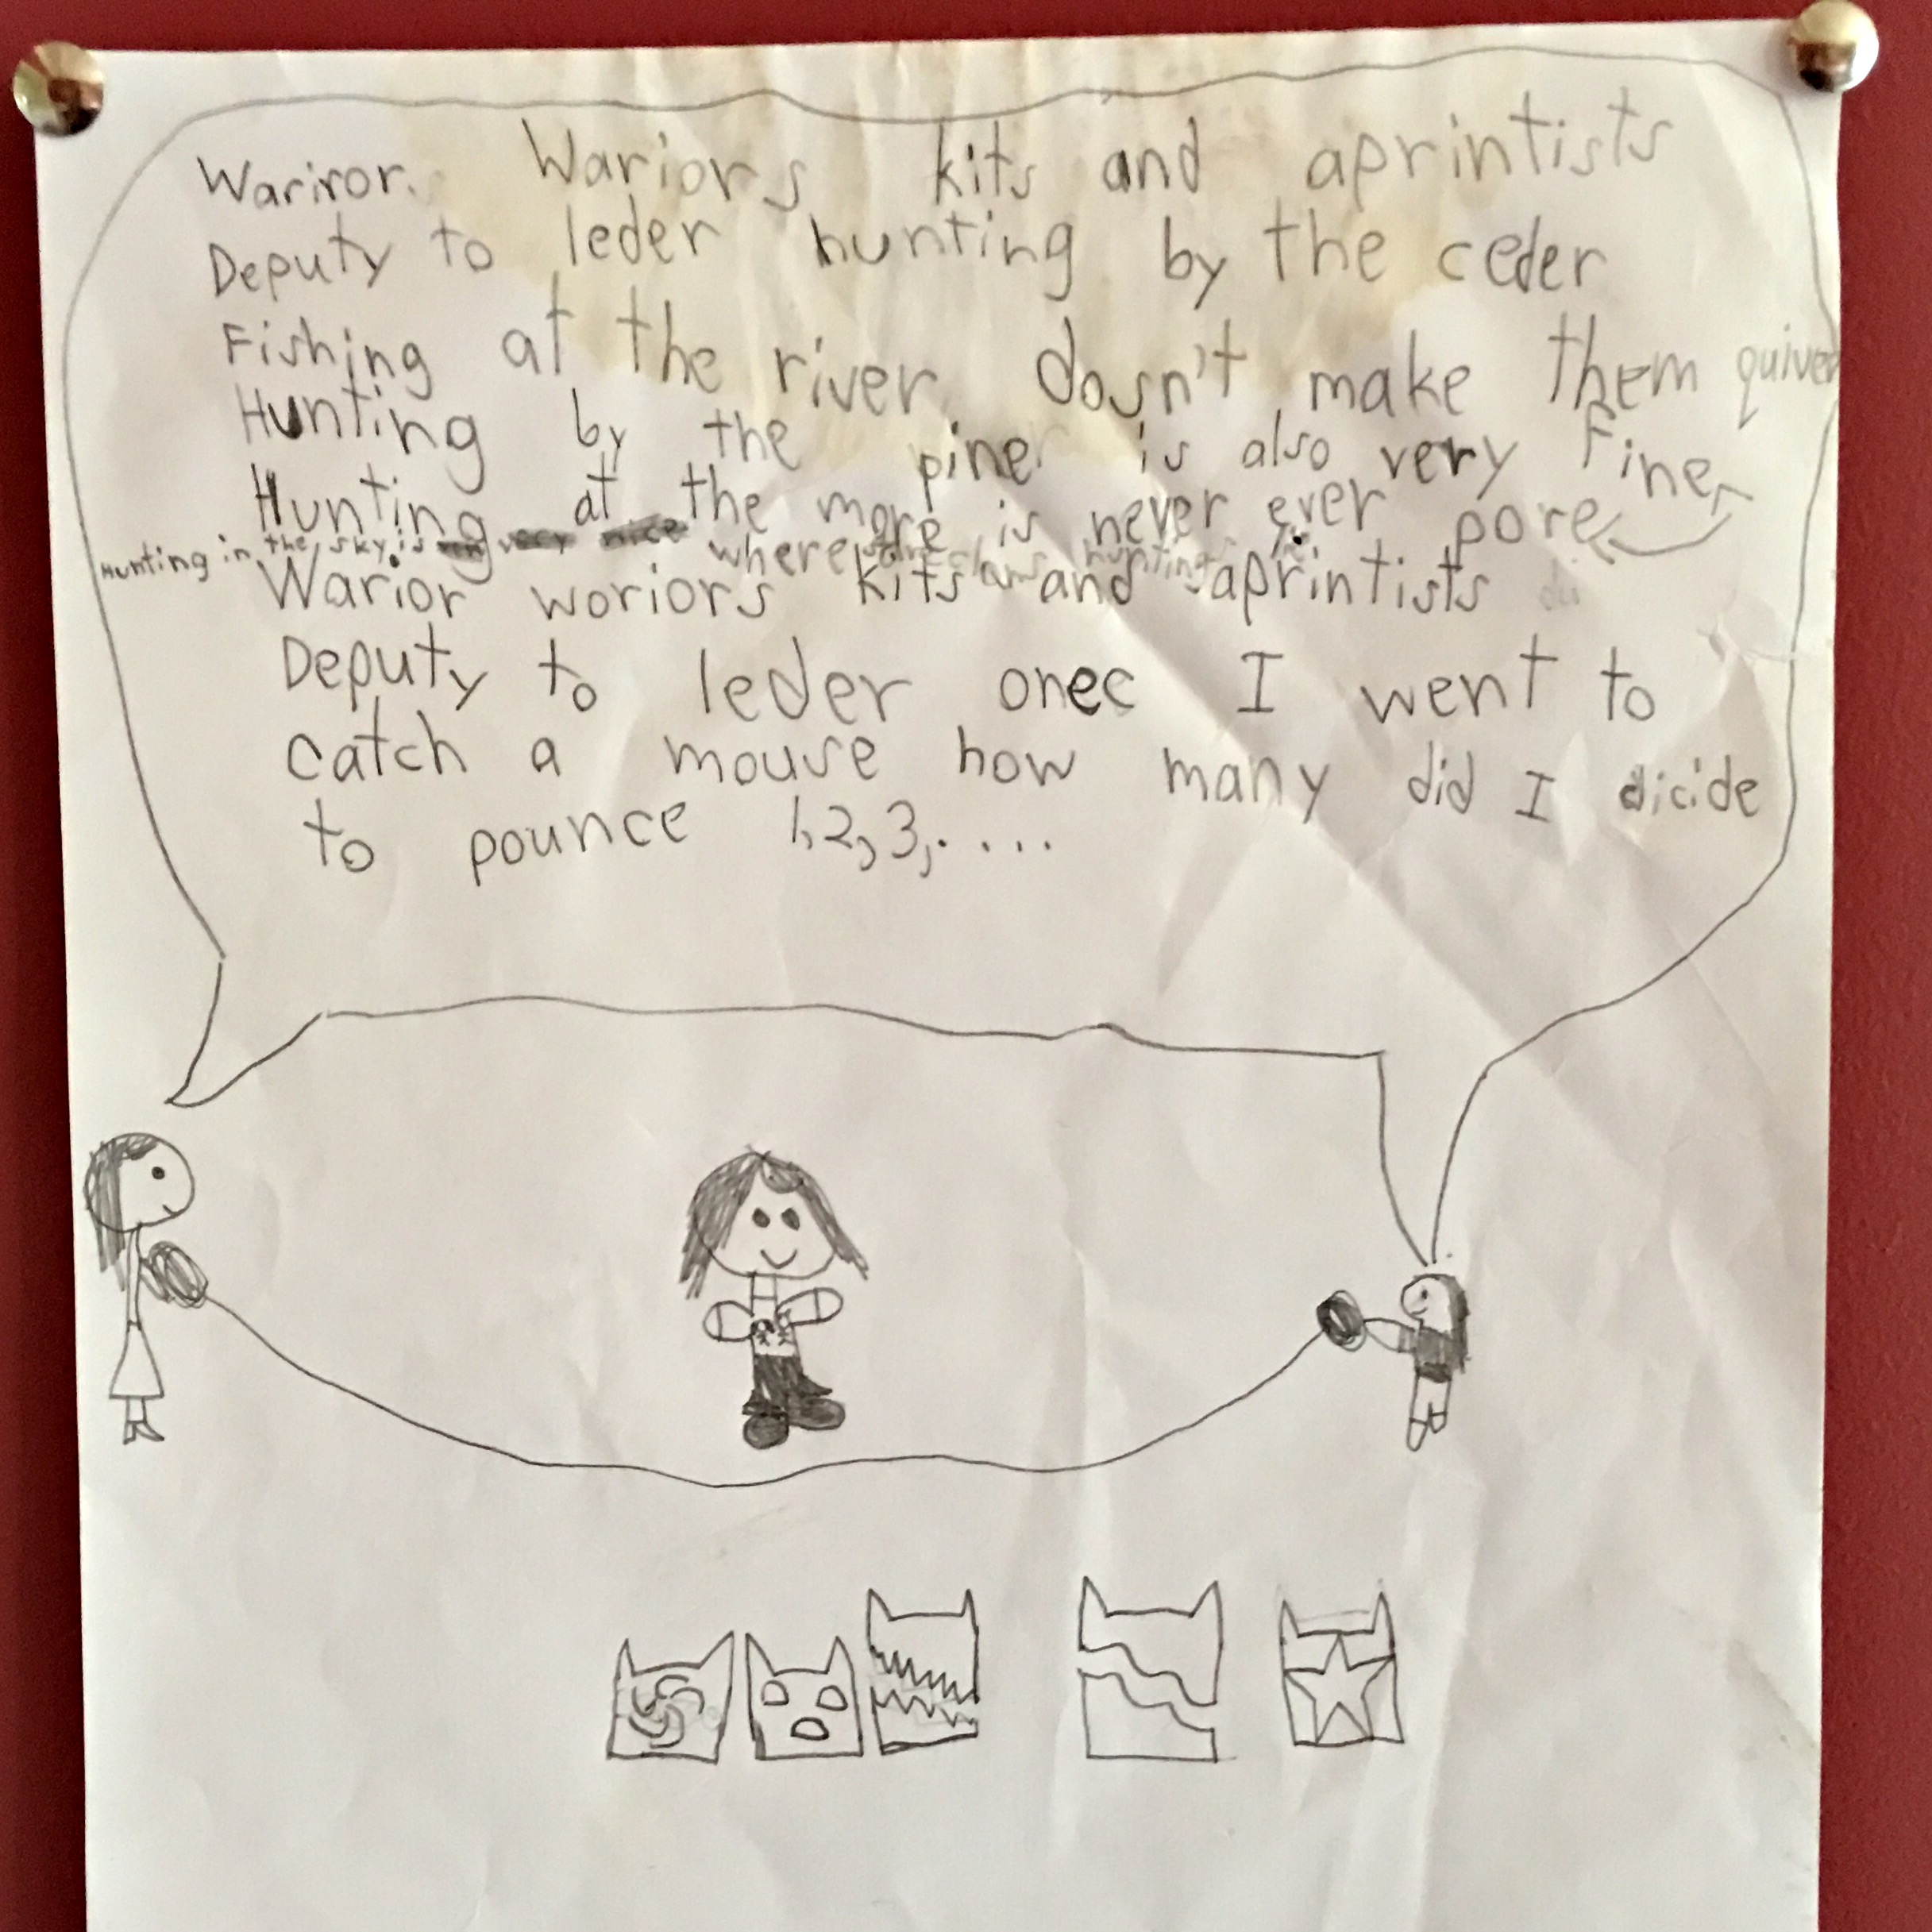 Wariror Wariors kits and aprintists
Deputy to leder hunting by the ceder
Fishing at the river dosn't make them quiver
Hunting by the pine is also very Fine
Hunting at the more is never ever pore
Hunting in the sky is where clans hunting
Warior woriors kits and aprintists
Deputy to leder onec I went to
catch a mouse how many did I dicide
to pounce 1,2,3,....